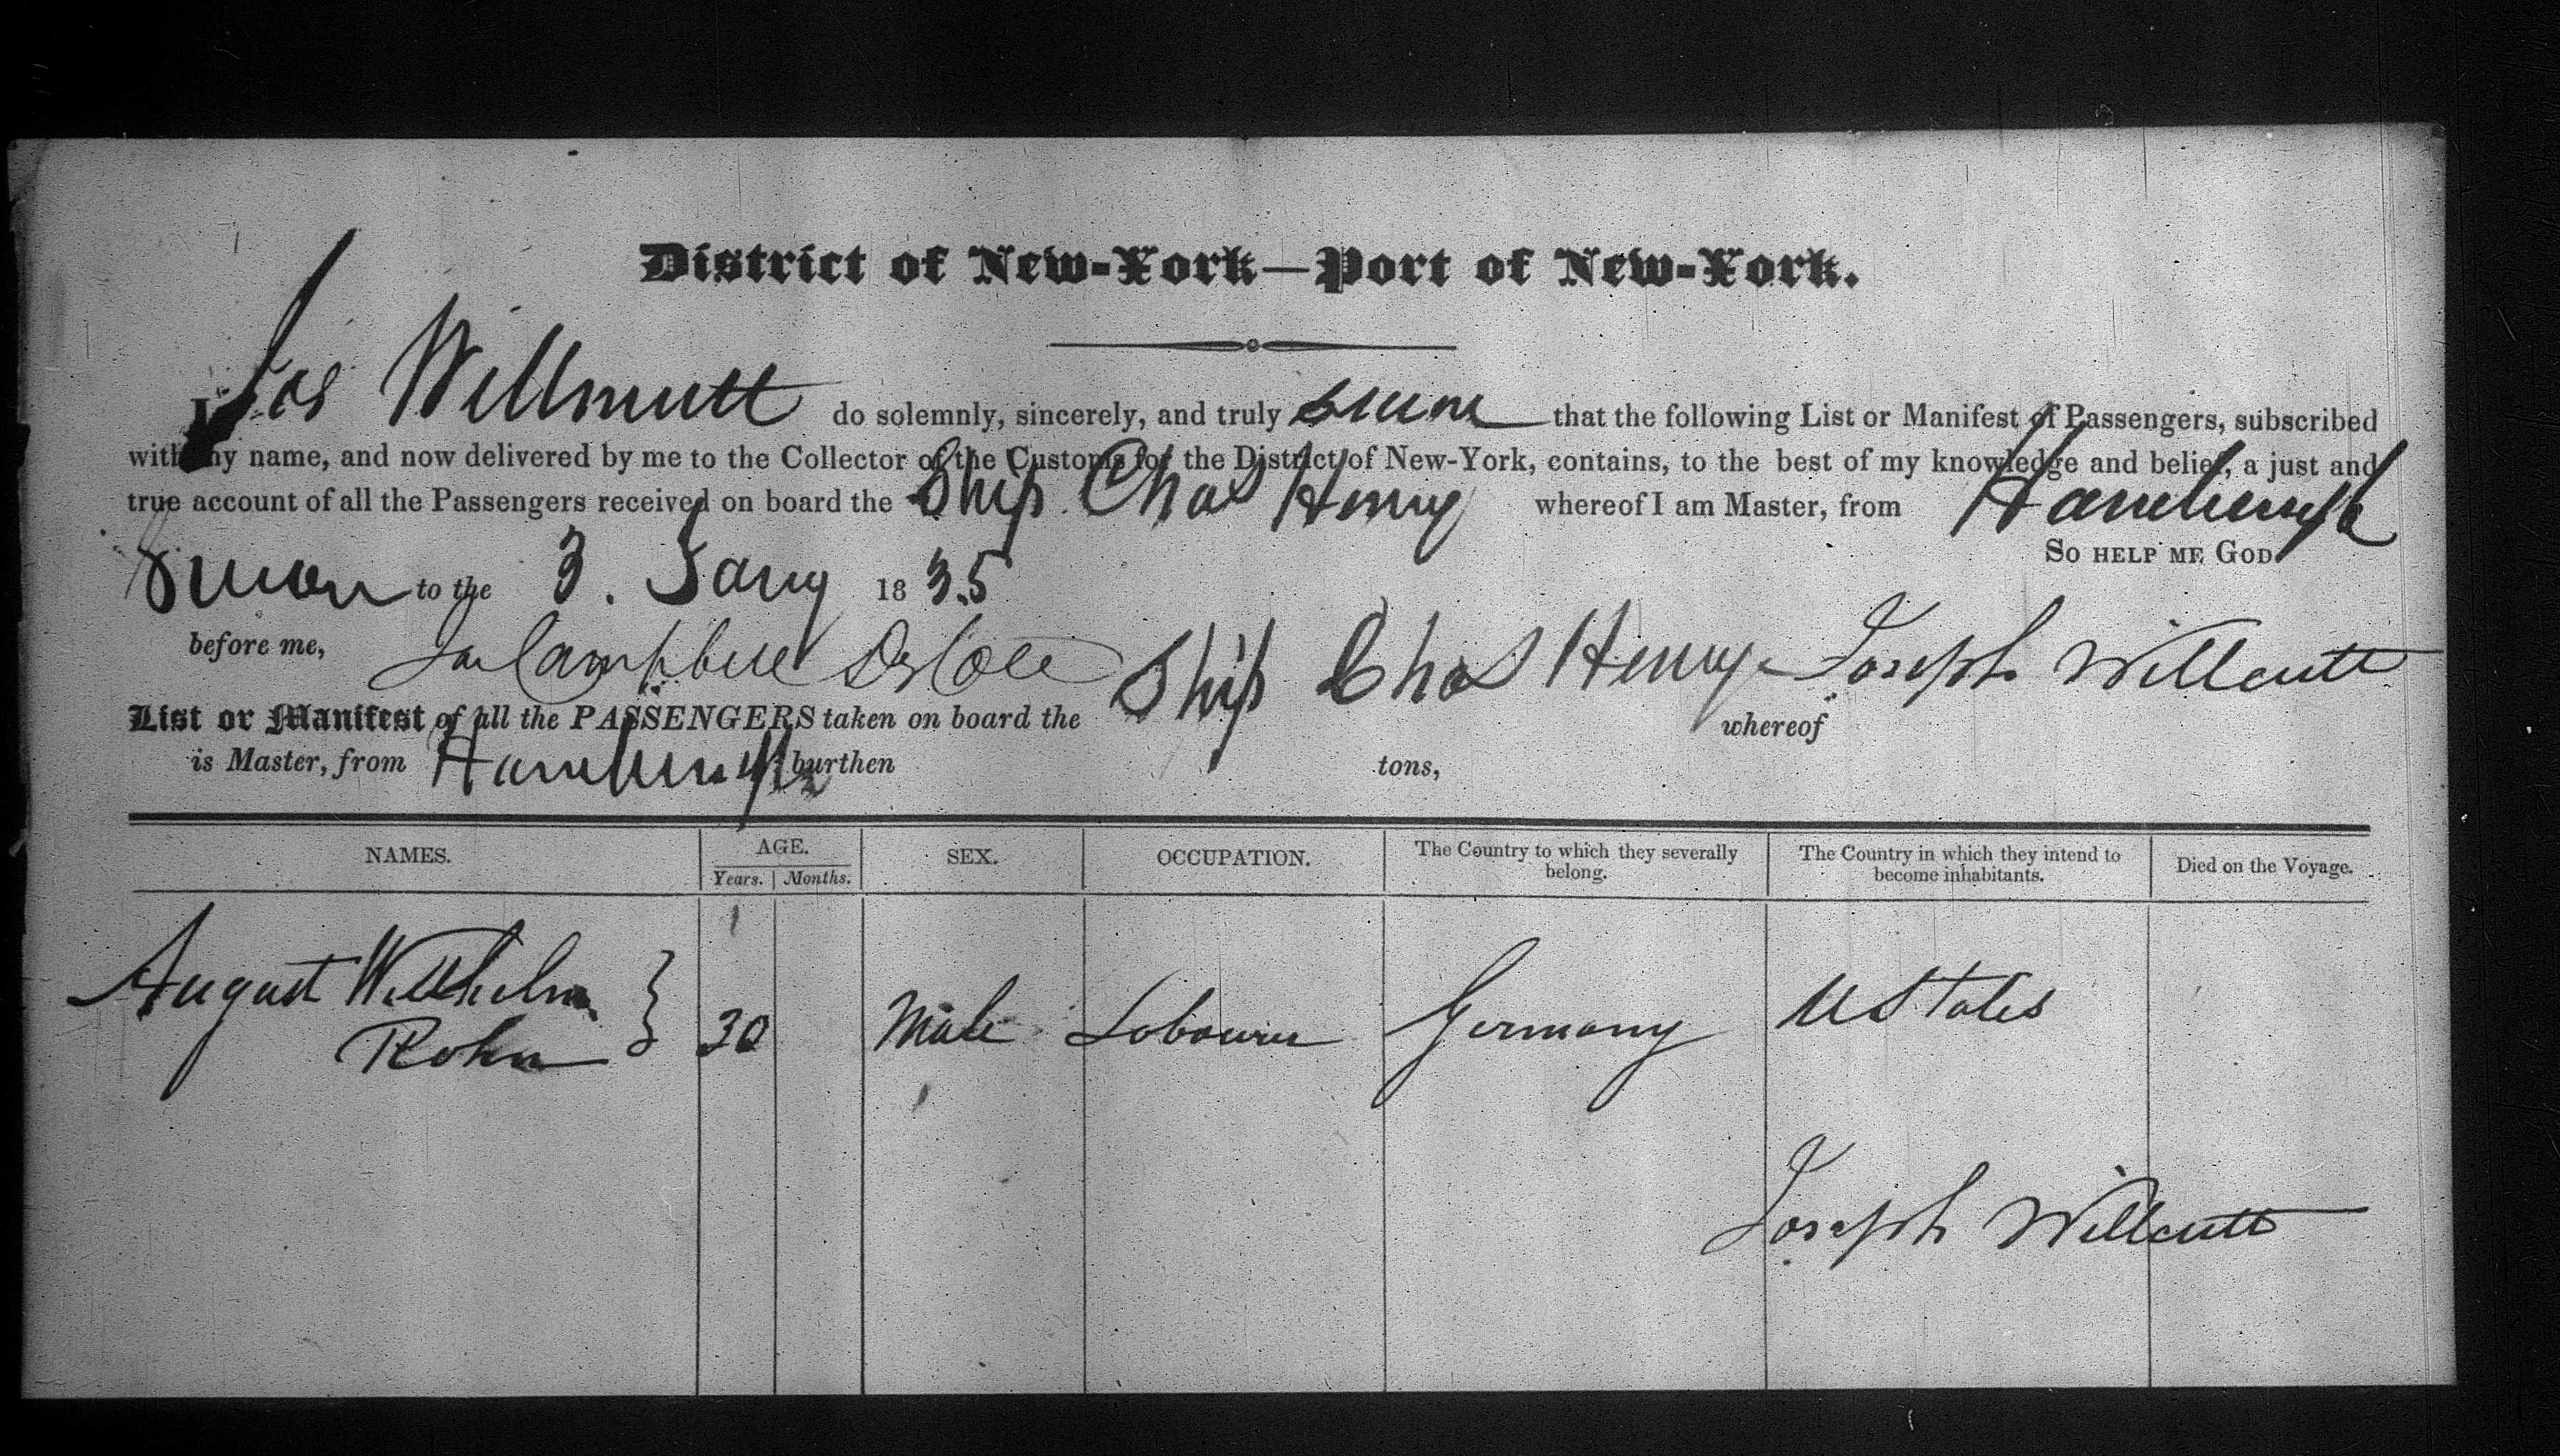 District of New-York—Port of New-York.
I Jos Willmutt do solemnly, sincerely, and truly swear that the following List or Manifest of Passengers, subscribed
with my name, and now delivered by me to the Collector of the Customs for the District of New-York, contains, to the best of my knowledge and belief, a just and
true account of all the Passengers received on board the Ship Chas Henry whereof I am Master, from Hamburgh
So help me God
Sworn to the 3. Jany 1835
before me, Campbell Dy Coll
List or Manifest of all the PASSENGERS taken on board the Ship Chas Henry whereof Joseph Willcutt
is Master, from Hamburgh burthen tons,
NAMES. AGE. SEX. OCCUPATION. The Country to which they severally belong. The Country in which they intend to become inhabitants. Died on the Voyage.
Years. Months.
August Willhelm
Rohn } 30 Male Labourer Germany U States
Joseph Willcutt